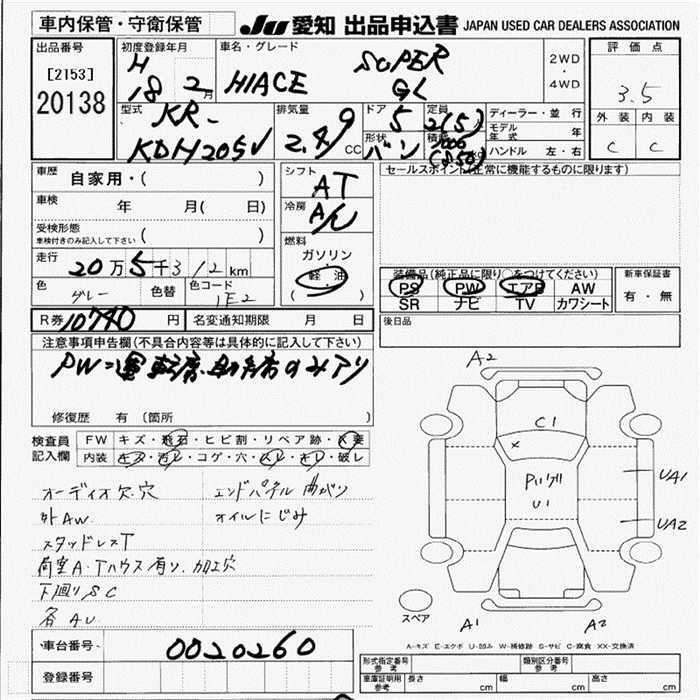 車内保管・守衛保管
JU 愛知 出品申込書 JAPAN USED CAR DEALERS ASSOCIATION
出品番号
[2153]
20138
初度登録年月
H
18 2 月
車名・グレード
HIACE SUPER
GL
2WD
・
4WD
評価点
3.5
外装 内装
C C
型式
KR-
KDH205V
排気量
2.49 CC
ドア
5
形状
バン
定員
2(5)
積載
1000
(850)
ディーラー・並行
モデル年式 年
ハンドル 左・右
車歴
自家用・( )
車検
年 月( 日)
受検形態
車検付きのみ記入して下さい ( )
走行
20万5千312km
色
グレー
色替
色コード
1E2
シフト
AT
冷房
A/C
燃料
ガソリン
軽油
( )
セールスポイント(正常に機能するものに限ります)
装備品(純正品に限り○をつけてください)
PS PW エアB AW
SR ナビ TV カワシート
新車保証書
有・無
R券 10740 円
名変通知期限 月 日
後日品
注意事項申告欄(不具合内容等は具体的に記入して下さい)
PW=運転席、助手席のみアリ
修復歴 有 〔箇所 〕
検査員
記入欄
FW キズ・飛石・ヒビ割・リペア跡・X要
内装 キズ・汚レ・コゲ・穴・スレ・キレ・破レ
オーディオ欠.穴
外AW.
スタッドレスT
荷室A・Tハウス有り.加工穴
下廻りSC
各AU
エンドパネル曲がり
オイルにじみ
A2
C1
X
U1
UA1
UA2
スペア
A1
A2
A-キズ E-エクボ U-凹み W-補修跡 S-サビ C-腐食 XX-交換済
車台番号
0020260
登録番号
形式指定番号
参考
類別区分番号
参考
車庫証明用
参考
長さ cm
幅 cm
高さ cm